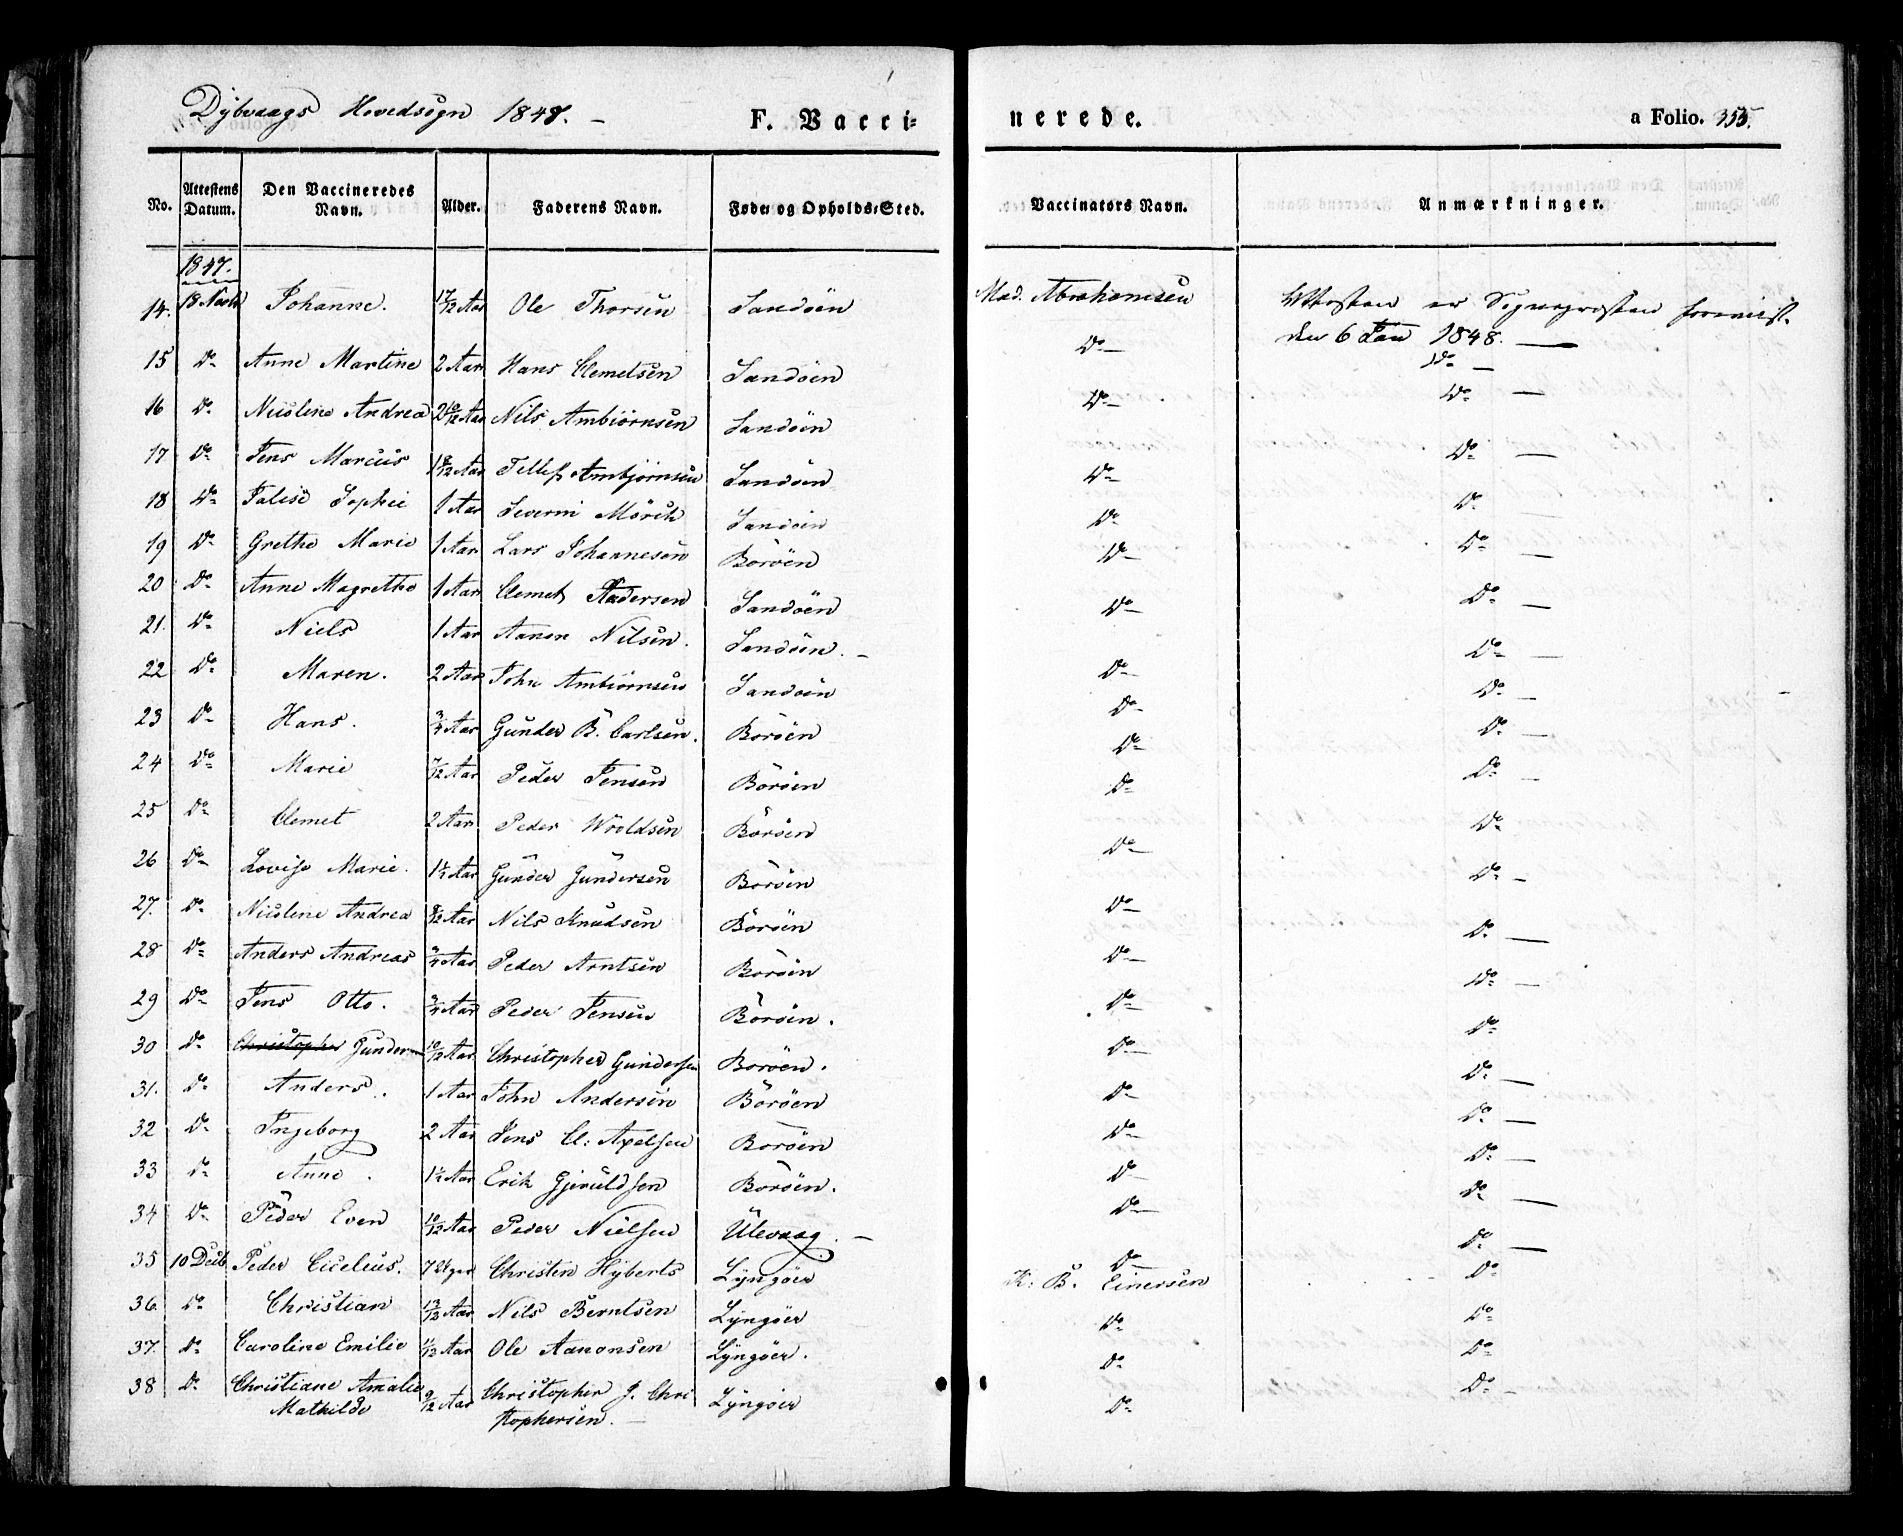 Dybvaags Hovedsogn 1847. –
F. Vacci-
nerede.
a Folio. 355.
No. Attestens Datum. Den Vaccineredes Navn. Alder. Faderens Navn. Føde- og Opholds-Sted. Vaccinators Navn. Anmærkninger.
1847.
14. 18 Novb Johanne. 17/12 Aar Ole Thorsen Sandöen Mad. Abrahamsen Attesten er Sogneprosten foreviist.
den 6 Jan 1848. —
15 Do Anne Martine 2 Aar Hans Clemetsen Sandöen Do — Do —
16 Do Nicoline Andrea 2 10/12 Aar Nils Ambiörnsen Sandöen Do — Do —
17 Do Jens Marcus 1 8/12 Aar Tellef Ambjörnsen Sandöen Do — Do —
18 Do Talise Sophie 1 Aar Severin Mörch Sandöen Do Do —
19 Do Grethe Marie 1 Aar Lars Johannesen Boröen Do — Do —
20 Do Anne Magrethe 1 Aar Clemet Aadersen Sandöen Do — Do —
21. Do Niels 1 Aar Aanon Nilsen. Sandöen. – Do — Do —
22 Do Maren. 2 Aar John Ambiörnsen Sandöen Do — Do —
23 Do Hans. 3/4 Aar Gunder B. Carlsen. Boröen Do — Do —
24 Do Marie 7/12 Aar Peder Jensen Boröen Do Do —
25 Do Clemet 2 Aar Peder Wroldsen Boröen Do — Do
26 Do Lovise Marie. 1 1/2 Aar Gunder Gundersen Boröen Do — Do —
27. Do Nicoline Andrea 8/12 Aar Nils Knudsen Boröen Do — Do —
28 Do Anders Andreas 3/4 Aar Peder Arntsen Boröen Do — Do —
29 Do Jens Otto. 3/4 Aar Peder Jensen Boröen. Do — Do
30 Do Christopher Gunder 10/12 Aar Christopher Gundersen Boröen. Do — Do —
31. Do Anders. 1 Aar John Andersen Boröen Do — Do —
32 Do Ingeborg 2 Aar Jens Cl: Apelsen Boröen Do — Do —
33 Do Anne. 1 1/2 Aar Erik Gjeruldsen Boröen. Do — Do —
34 Do Peder Even 10/12 Aar Peder Nielsen Ulevaag. – Do Do —
35 10 Decb Peder Cicelius. 7 Uger Christen Hyberts Lyngöer K: B. Einersen Do
36. Do Christian 13/12 Aar Nils Berntsen Lyngöer Do Do
37. Do Caroline Emilie 11/12 Aar Ole Aanonsen Lyngöer. Do Do
38 Do Christiane Amalie 9/12 Aar Christopher J. Chri Lyngöer Do Do —
Mathilde stophersen. —